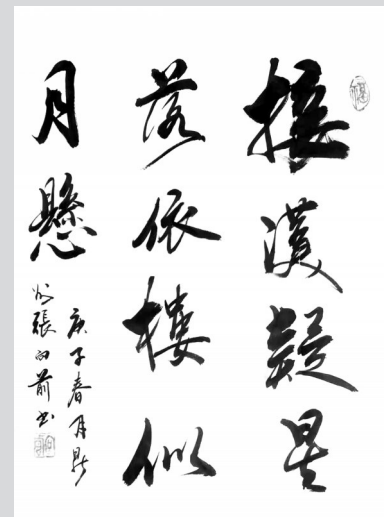 接漢疑星
落依樓似
月懸
庚子春月
張向前书